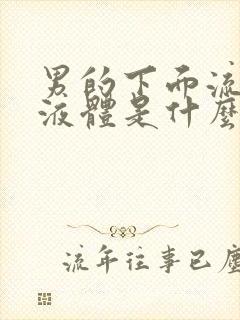 男的下面流
液體是什麼
流年往事已塵